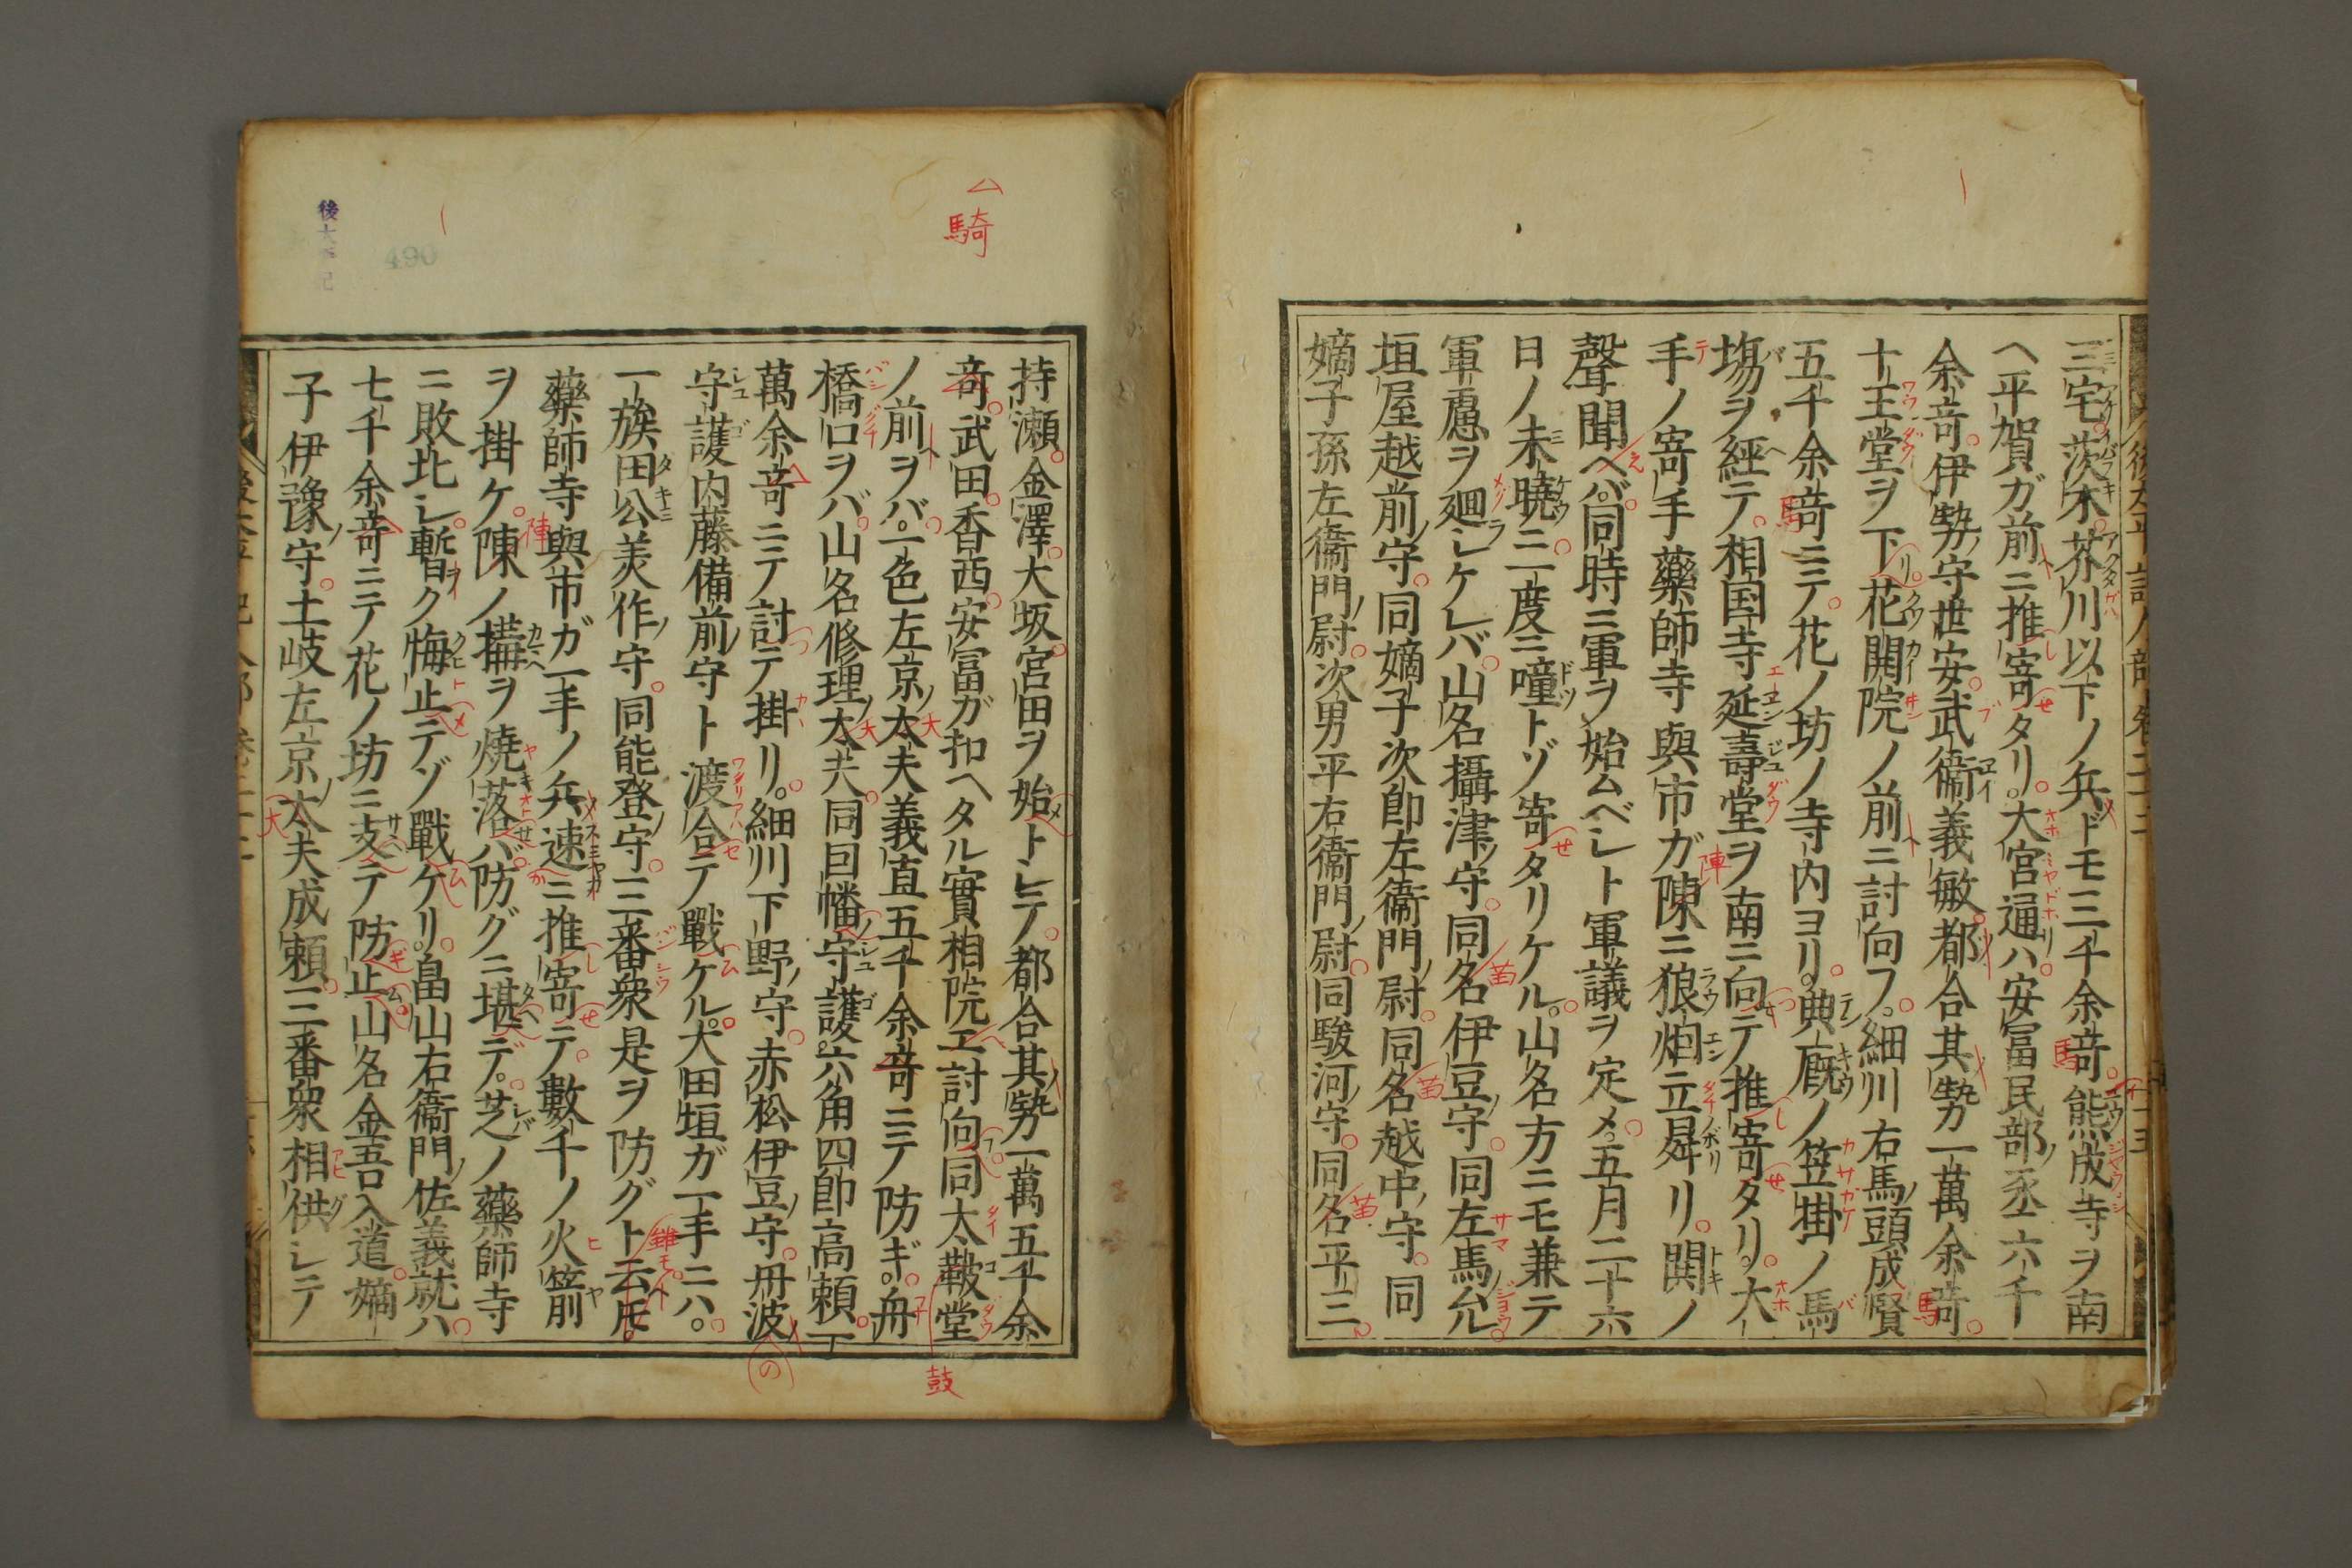 三宅茨木芥川以下ノ兵ドモ三千余竒熊成寺ヲ南
ヘ平賀ガ前ニ推寄タリ大宮通ハ安冨民部丞六千
余竒伊勢守世安武衞義敏都合其勢一萬余竒
十王堂ヲ下リ花開院ノ前ニ討向フ細川右馬頭成賢
五千余竒ニテ花ノ坊ノ寺内ヨリ典厩ノ笠掛ノ馬
塲ヲ經テ相国寺延壽堂ヲ南ニ向テ推寄タリ大
手ノ寄手藥師寺與市ガ陳ニ狼烟立舜リ鬨ノ
聲聞ヘバ同時ニ軍ヲ始ムベレト軍議ヲ定メ五月二十六
日ノ未曉ニ一度ニ噇トゾ寄タリケル山名方ニモ兼テ
軍慮ヲ廻レケレバ山名攝津守同名伊豆守同左馬允
垣屋越前守同嫡子次郎左衞門尉同名越中守同
嫡子孫左衞門尉次男平右衞門尉同駿河守同名平三
後太平記人部巻二十二
△騎
持瀬金澤大坂宮田ヲ始トレテ都合其勢一萬五千余
竒武田香西安冨ガ扣ヘタル實相院エ討向同太鞁堂
ノ前ヲバ一色左京太夫義直五千余竒ニテ防ギ舟
橋口ヲバ山名修理太夫同回幡守護六角四郎高頼一
萬余竒ニテ討テ掛リ細川下野守赤松伊豆守丹波
守護内藤備前守ト渡合テ戰ケル大田垣ガ一手ニハ
一族田公美作守同能登守三番衆是ヲ防グト云𪜈
藥師寺與市ガ一手ノ兵速ニ推寄テ數千ノ火箭
ヲ掛ケ陳ノ構ヲ燒落バ防グニ堪デ芝ノ藥師寺
ニ敗北レ暫ク悔止テゾ戰ケリ畠山右衞門佐義就ハ
七千余竒ニテ花ノ坊ニ支テ防止山名金吾入道嫡
子伊豫守土岐左京太夫成頼三番衆相供レテ
鼓
後太平記
490